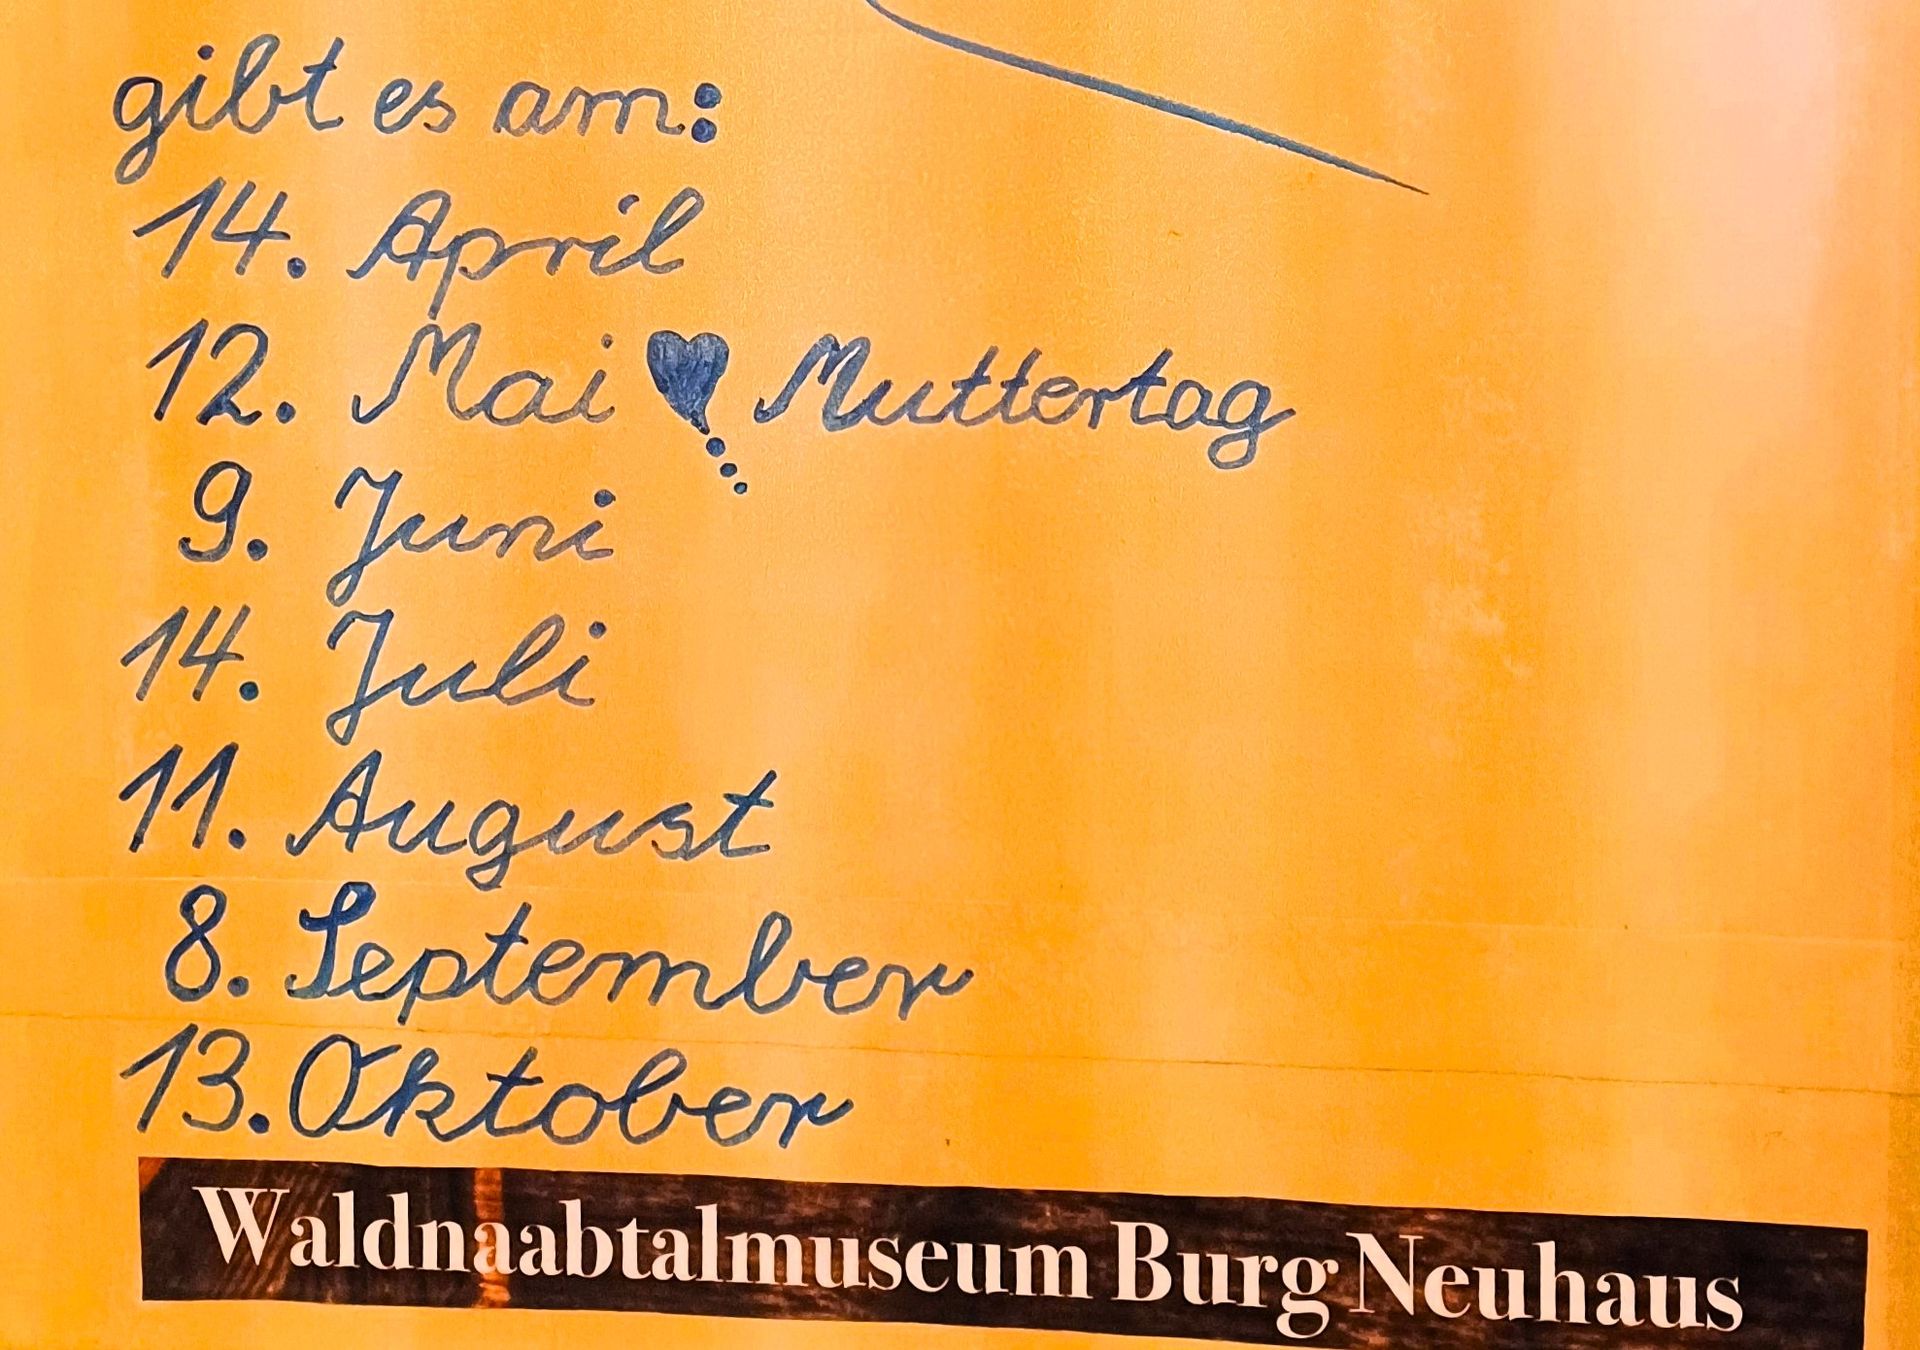 gibt es am:
14. April
12. Mai ♥ Muttertag
9. Juni
14. Juli
11. August
8. September
13. Oktober
Waldnaabtalmuseum Burg Neuhaus